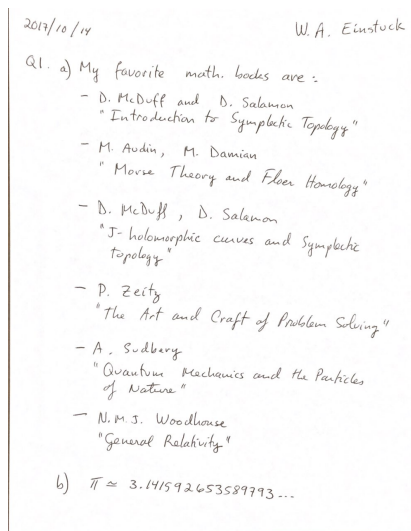 2017/10/14
W. A. Einstuck
Q1. a) My favorite math. books are :
- D. McDuff and D. Salamon
"Introduction to Symplectic Topology"
- M. Audin, M. Damian
"Morse Theory and Floer Homology"
- D. McDuff, D. Salamon
"J-holomorphic curves and Symplectic
topology"
- P. Zeitz
"The Art and Craft of Problem Solving"
- A. Sudbery
"Quantum Mechanics and the Particles
of Nature"
- N.M.J. Woodhouse
"General Relativity"
b) π ≃ 3.141592653589793...